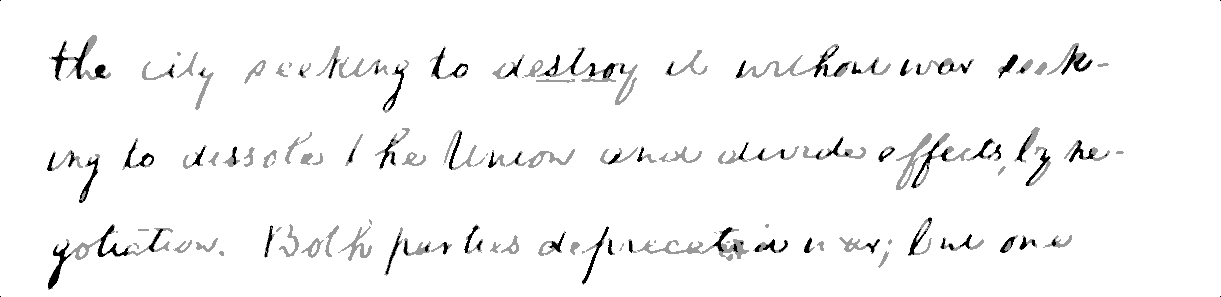 the city seeking to destroy it without war seek-
ing to dissole the Union and divide effects, by ne-
gotiation. Both parties deprecated war; but one